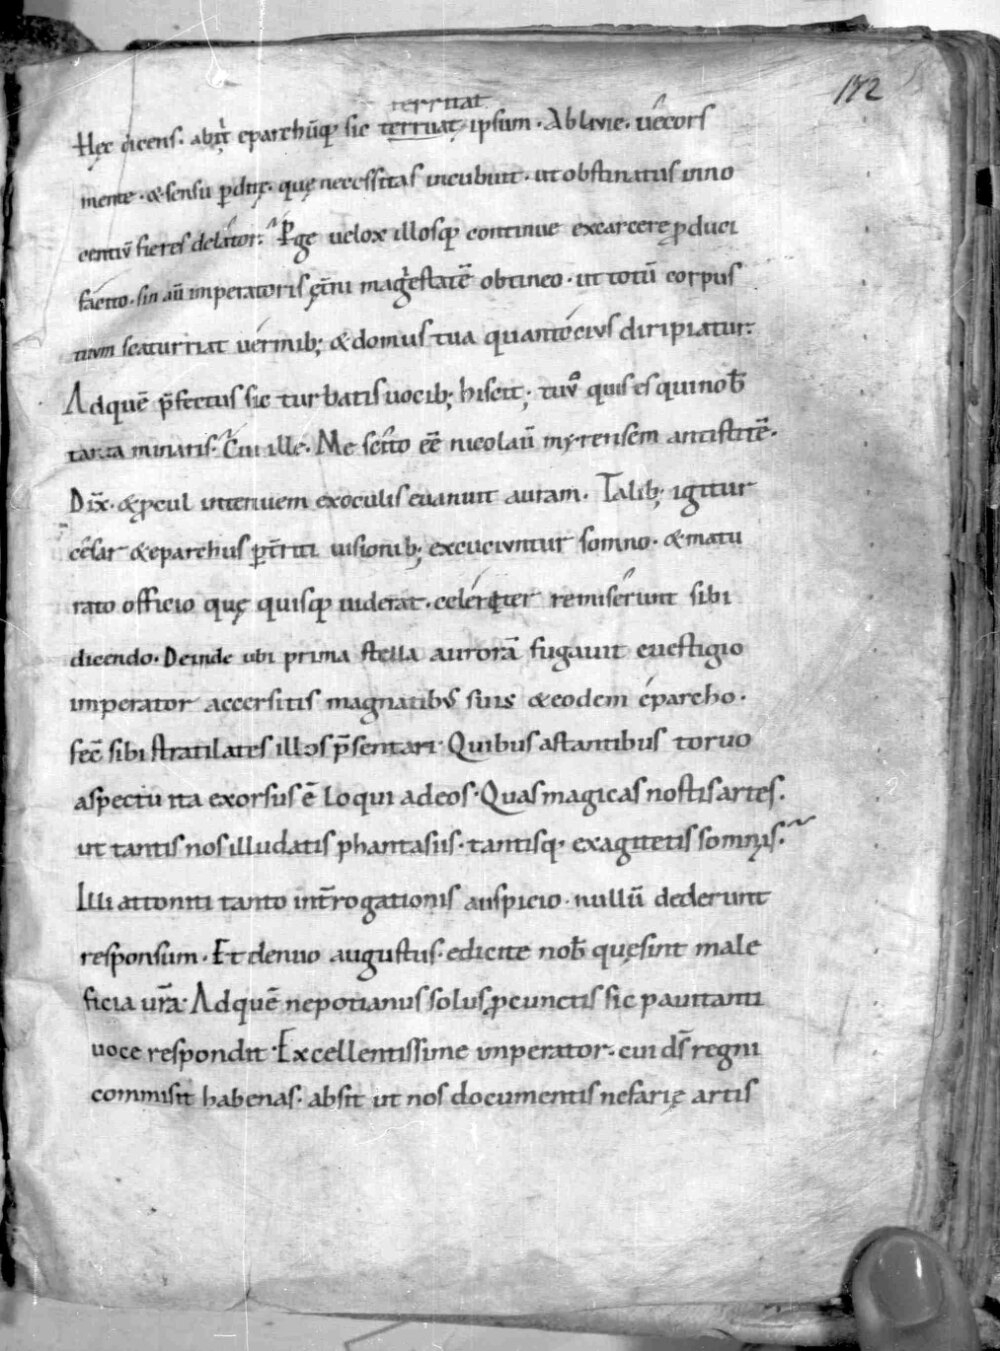 172
terruat
Hęc dicens. abiit eparchūq; sic terruat ipsum. Ablivie. uécors
mente. & sensu pditę. quę necessitas incubuit. ut obstinatus inno
centiū fieres delátor. Pge uelox illosq; continue excarcere pduci
fácito. sin aū imperatoris ęt̄ni magiestatē obtineo. ut totū corpus
tuum scaturriat uérmib; & domus tua quantócius diripiatur.
Adquē p̄fectus sic turbatis uocib; hiscit; tuū quis es qui nob̄
tanta minaris. Cui ille. Me scíto eē nicolaū myrensem antistitē.
Dix̄. & pcul intenuem exoculis euanuit auram. Talib; igitur
césar & eparchus pt̄riti uisionib; excuciuntur somno. & matu
rato officio quę quisq; uiderat. celériter remisérunt sibi
dicendo. Deinde ubi prima stella aurorā fugauit euestigio
imperator accersitis magnatibus suis & eodem éparcho.
fec̄ sibi stratilates illos p̄sentari. Quibus astantibus toruo
aspectu ita exorsus ē loqui adeos. Quas magicas nostis artes.
ut tantis nos illudatis phantasiis. tantisq; exagitetis somniis.
Illi attoniti tanto int̄rogationis auspicio. nullū dederunt
responsum. Et denuo augustus. edicite nob̄ quęsint male
ficia ur̄a. Adquē nepotianus solus pcunctis sic pauitanti
uoce respondit. Excellentissime imperator. cui ds̄ regni
commisit habenas. absit ut nos documentis nefarię artis